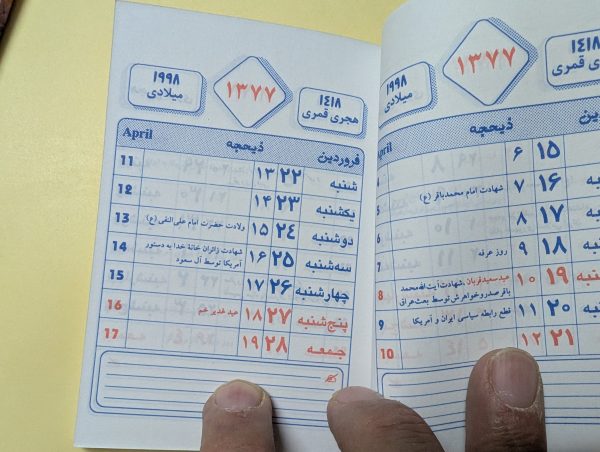 ۱۴۱۸
هجری قمری
۱۳۷۷
۱۹۹۸
میلادی
ذیحجه
۱۵ ۶
۱۶ ۷ شهادت امام محمدباقر (ع) 5
۱۷ ۸
۱۸ ۹ روز عرفه 7
۱۹ ۱۰ عید سعید قربان، شهادت آیت‌الله محمد 8
باقر صدر و خواهرش توسط بعث عراق
۲۰ ۱۱ قطع رابطه سیاسی ایران و آمریکا 9
۲۱ ۱۲ 10
۱۴۱۸
هجری قمری
۱۳۷۷
۱۹۹۸
میلادی
فروردین ذیحجه April
شنبه ۲۲ ۱۳ 11
یکشنبه ۲۳ ۱۴ 12
دوشنبه ۲۴ ۱۵ ولادت حضرت امام علی النقی (ع) 13
سه‌شنبه ۲۵ ۱۶ شهادت زائران خانۀ خدا به دستور 14
آمریکا توسط آل سعود
چهارشنبه ۲۶ ۱۷ 15
پنج‌شنبه ۲۷ ۱۸ عید غدیر خم 16
جمعه ۲۸ ۱۹ 17